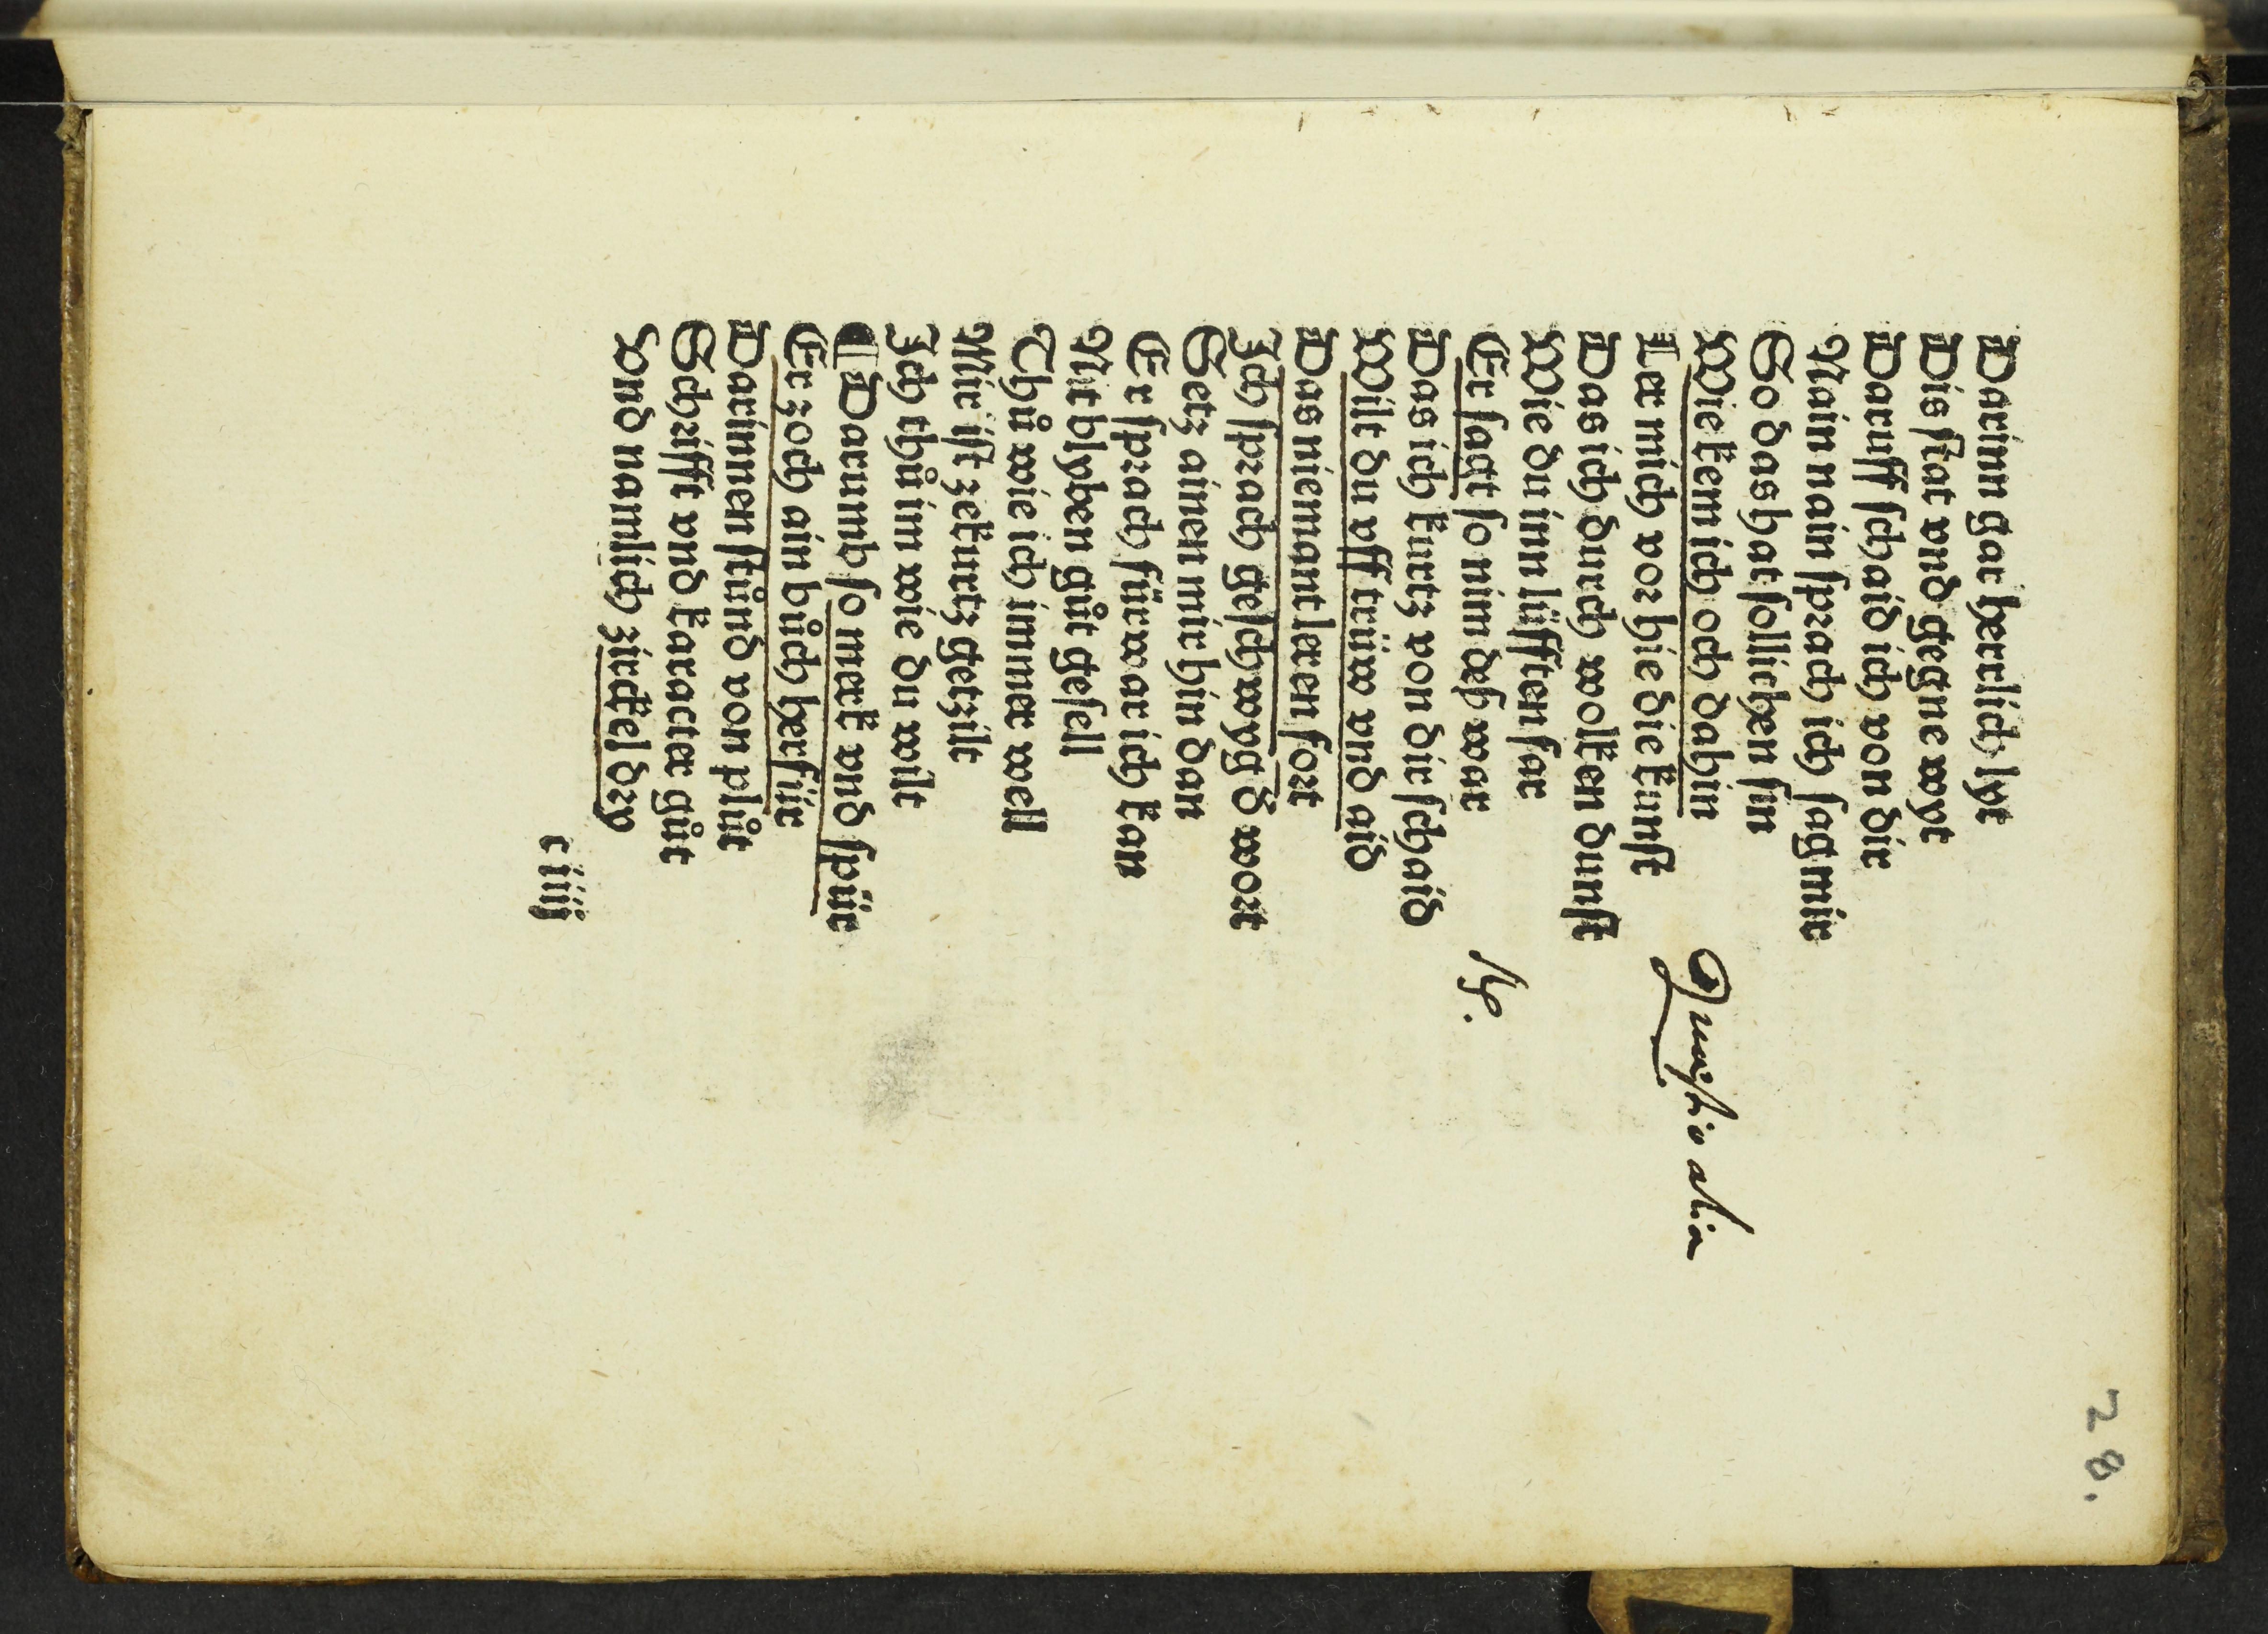 28.
Darinn gar herrlich lyt
Dis stat vnd gegne wyt
Daruff schaid ich von dir
Nain nain sprach ich sag mir
So das hat sollichen sin
Wie kem ich och dahin
Quæstio alia
Ler mich vor hie die kunst
Das ich durch wolken dunst
Wie du inn lüfften far
Er sagt so nim deß war
Rp.
Das ich kurtz von dir schaid
Wilt du vff trüw vnd aid
Das niemant leren fort
Ich sprach geschwyg d̄ wort
Setz ainen mir hin dan
Er sprach fürwar ich kan
Nit blyben gůt gesell
Thů wie ich immer well
Mir ist ze kurtz getzilt
Ich thů im wie du wilt
¶ Darumb so merck vnd spür
Er zoch ain bůch herfür
Darinnen stůnd von plůt
Schrifft vnd karacter gůt
Vnd namlich zirckel dry
c iiij